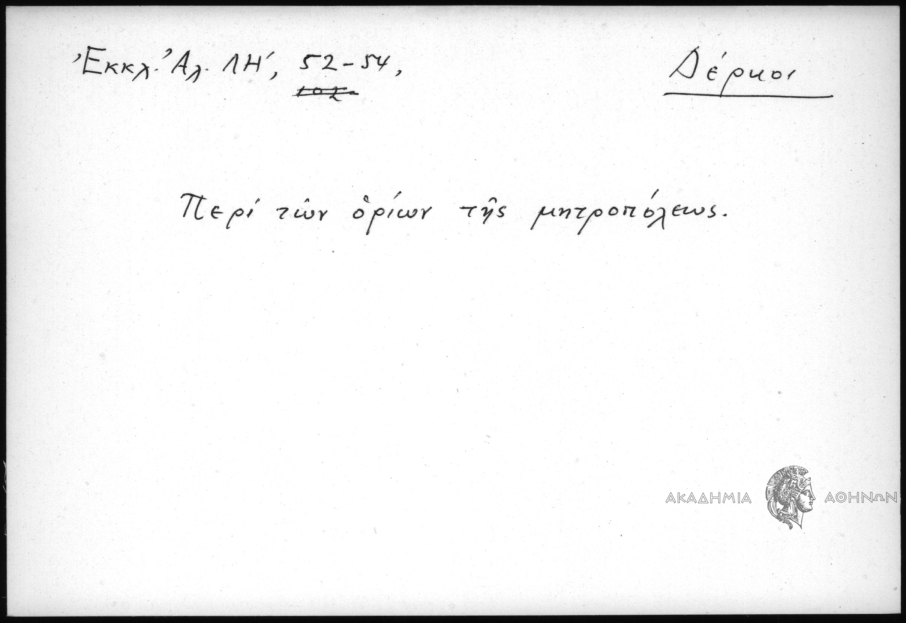 Ἐκκλ. Ἀλ. ΛΗ', 52-54,
102
Δέρκοι
Περί τῶν ὁρίων τῆς μητροπόλεως.
ΑΚΑΔΗΜΙΑ ΑΘΗΝΩΝ